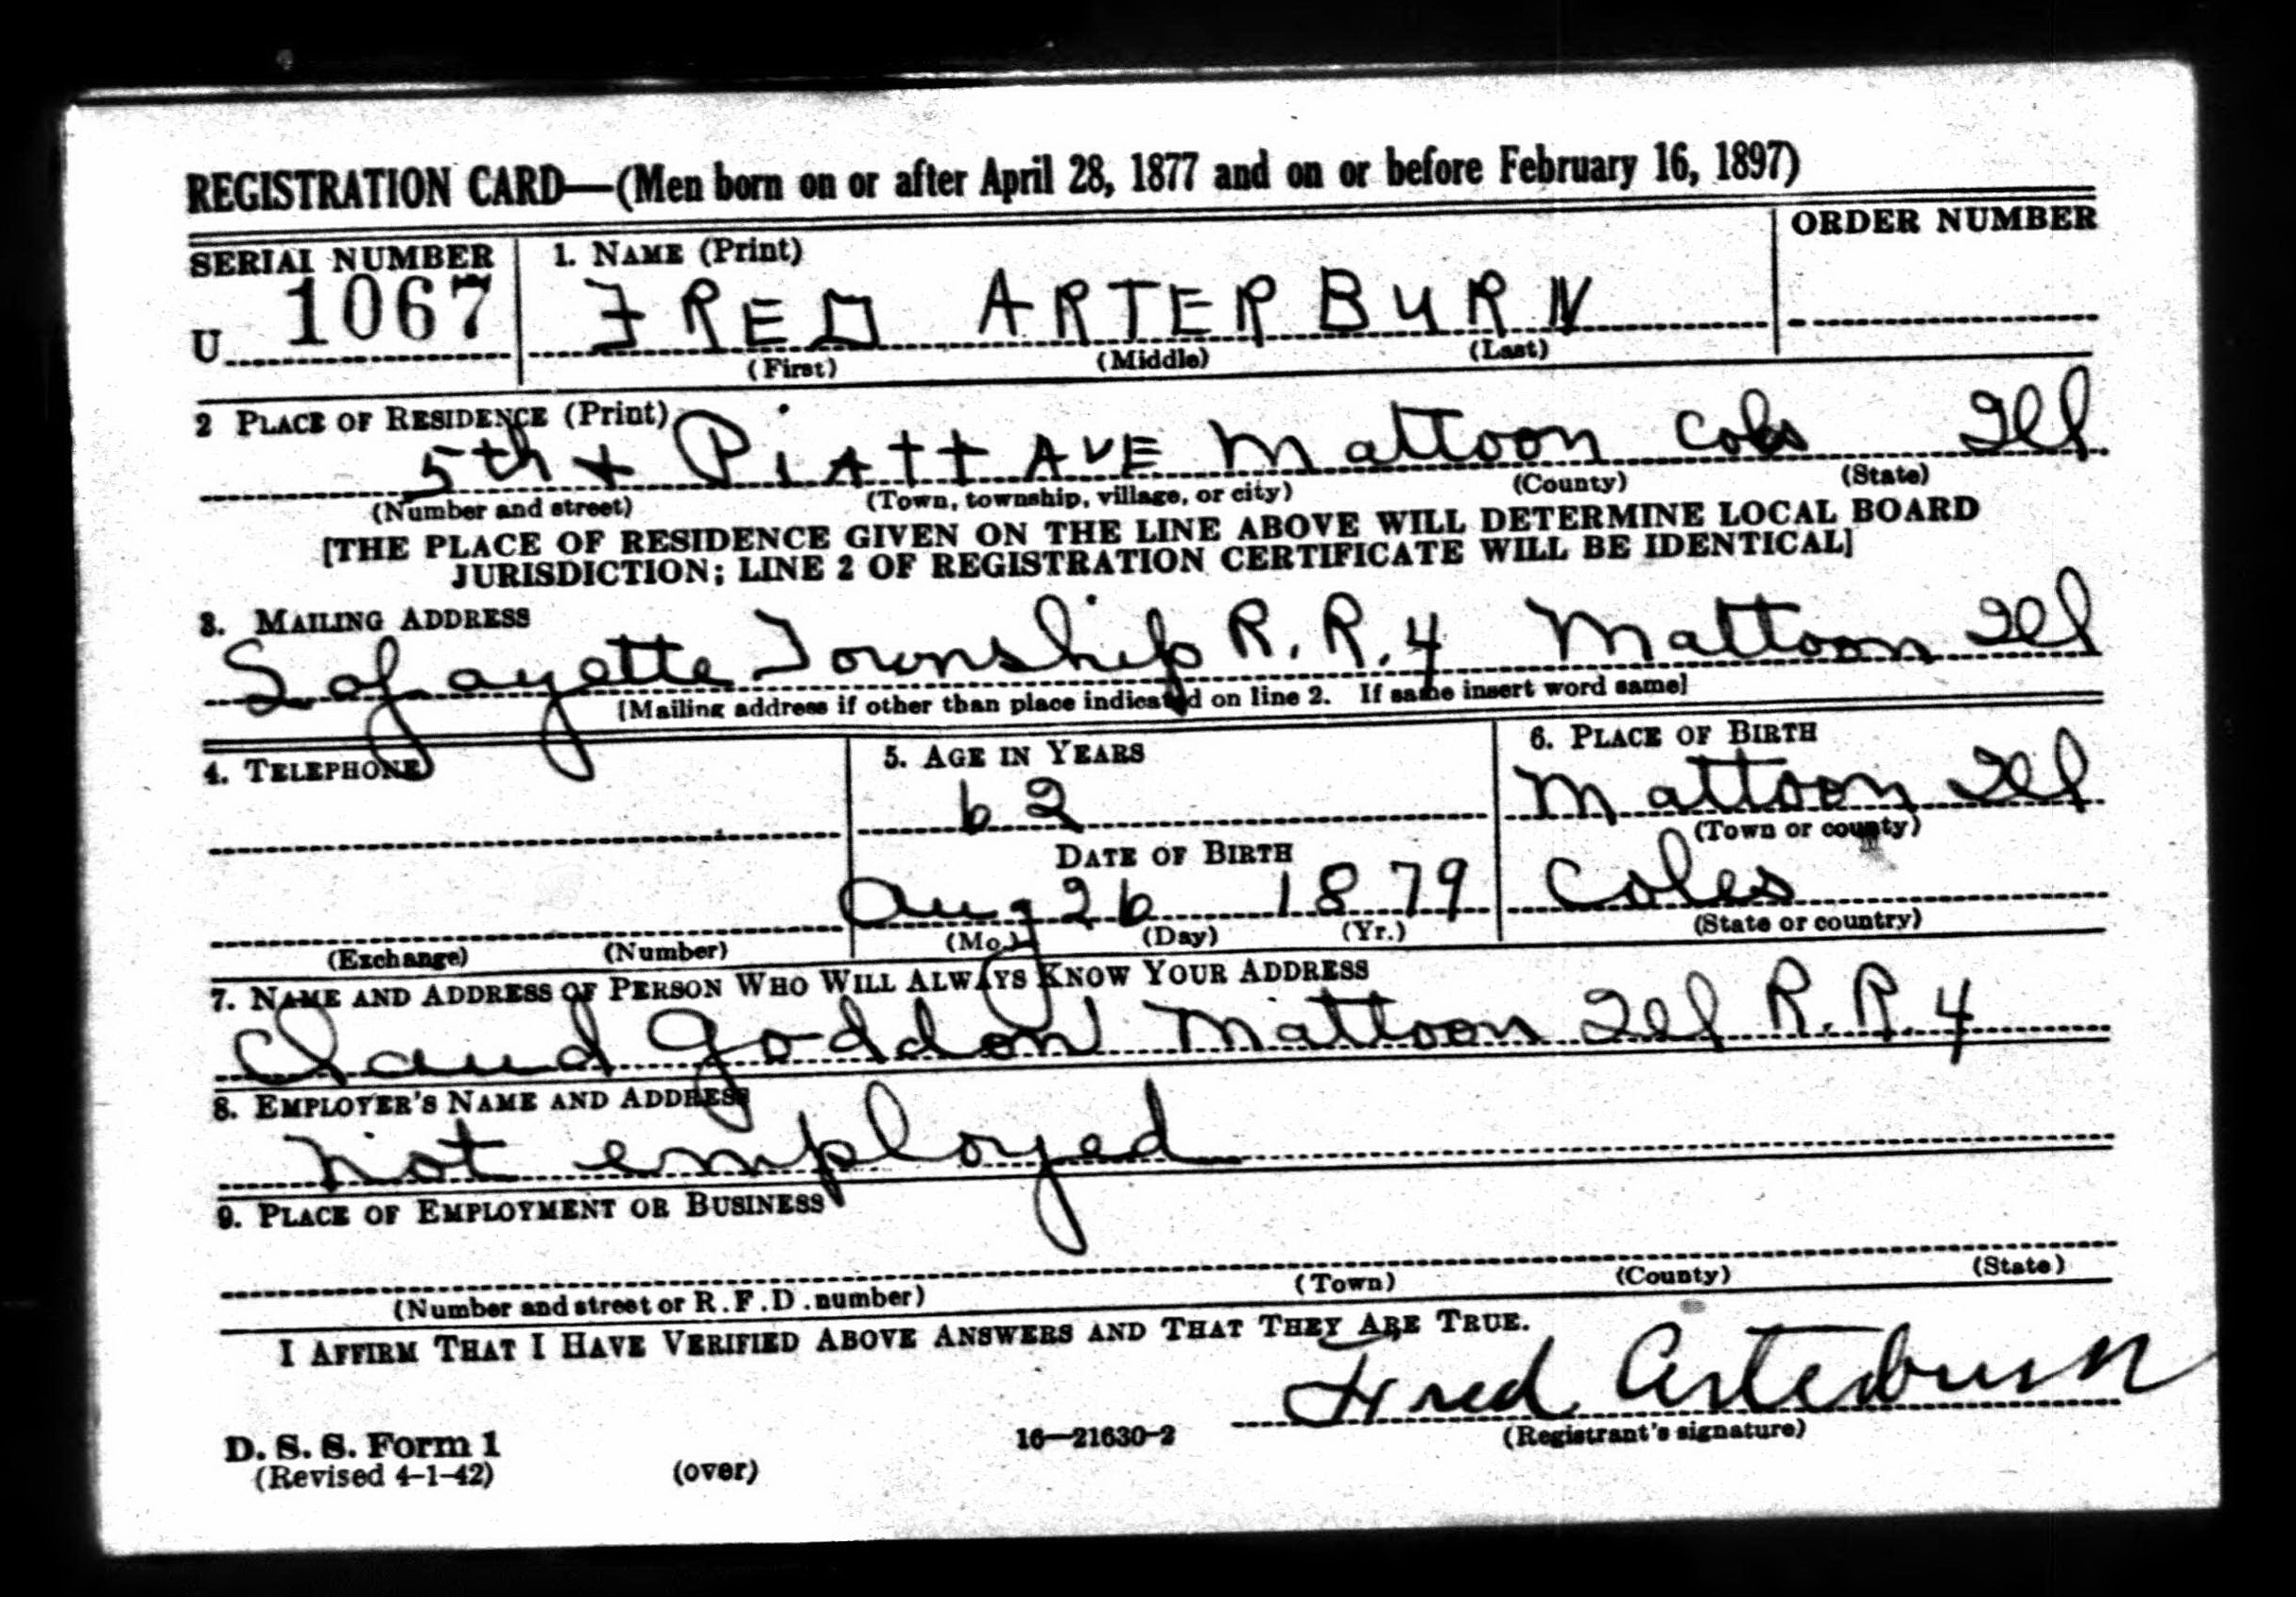 REGISTRATION CARD—(Men born on or after April 28, 1877 and on or before February 16, 1897)
SERIAL NUMBER 1. NAME (Print) ORDER NUMBER
U 1067 FRED ARTERBURN
(First) (Middle) (Last)
2 PLACE OF RESIDENCE (Print)
5th + Piatt AVE Mattoon Coles Ill
(Number and street) (Town, township, village, or city) (County) (State)
[THE PLACE OF RESIDENCE GIVEN ON THE LINE ABOVE WILL DETERMINE LOCAL BOARD
JURISDICTION; LINE 2 OF REGISTRATION CERTIFICATE WILL BE IDENTICAL]
3. MAILING ADDRESS
Lafayette Township R. R. 4 Mattoon Ill
[Mailing address if other than place indicated on line 2. If same insert word same]
4. TELEPHONE 5. AGE IN YEARS 6. PLACE OF BIRTH
62 Mattoon Ill
(Town or county)
DATE OF BIRTH
Aug 26 1879 Coles
(Exchange) (Number) (Mo.) (Day) (Yr.) (State or country)
7. NAME AND ADDRESS OF PERSON WHO WILL ALWAYS KNOW YOUR ADDRESS
Claud Goddon Mattoon Ill R. R. 4
8. EMPLOYER'S NAME AND ADDRESS
Not employed
9. PLACE OF EMPLOYMENT OR BUSINESS
(Number and street or R.F.D. number) (Town) (County) (State)
I AFFIRM THAT I HAVE VERIFIED ABOVE ANSWERS AND THAT THEY ARE TRUE.
Fred Arterburn
(Registrant's signature)
D. S. S. Form 1
(Revised 4-1-42) (over) 16—21630-2